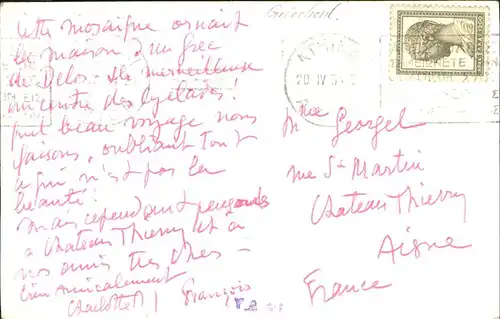 Cette mosaïque ornait
la maison d'un grec
de Délos. Ile merveilleuse
au centre des Cyclades!
beau voyage nous
faisons, oubliant tout
ce qui n'est pas la
beauté!
Mais cependant pensons
à Chateau Thierry et à
nos amis très chers
bien amicalement
Charlotte François
Griechenl.
20 IV 5
Mme Georgel
rue St Martin
Chateau Thierry
Aisne
France